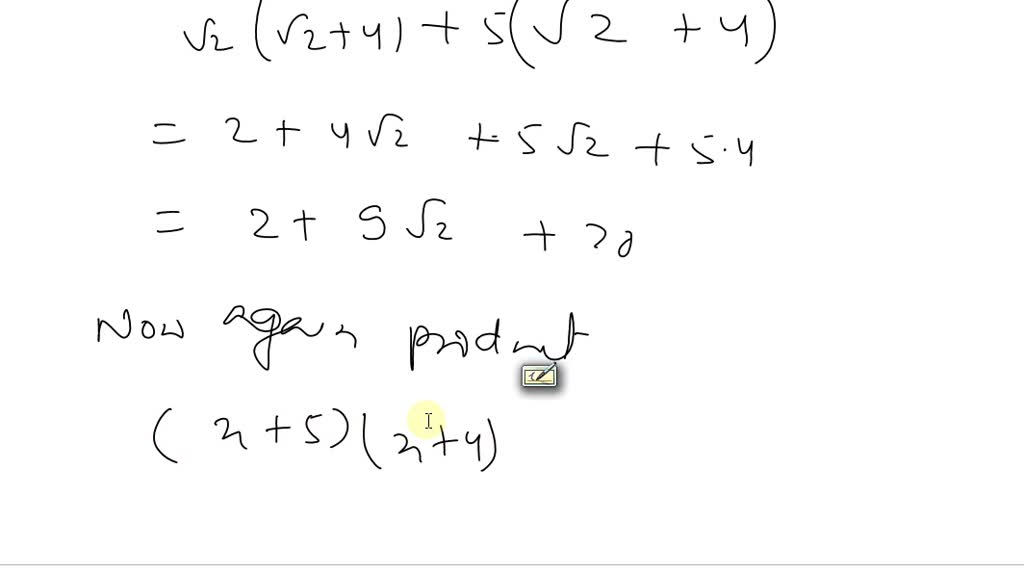 √2 (√2+4) + 5(√2 + 4)
= 2 + 4√2 + 5√2 + 5·4
= 2 + 9√2 + 20
Now again product
(x+5)(x+4)